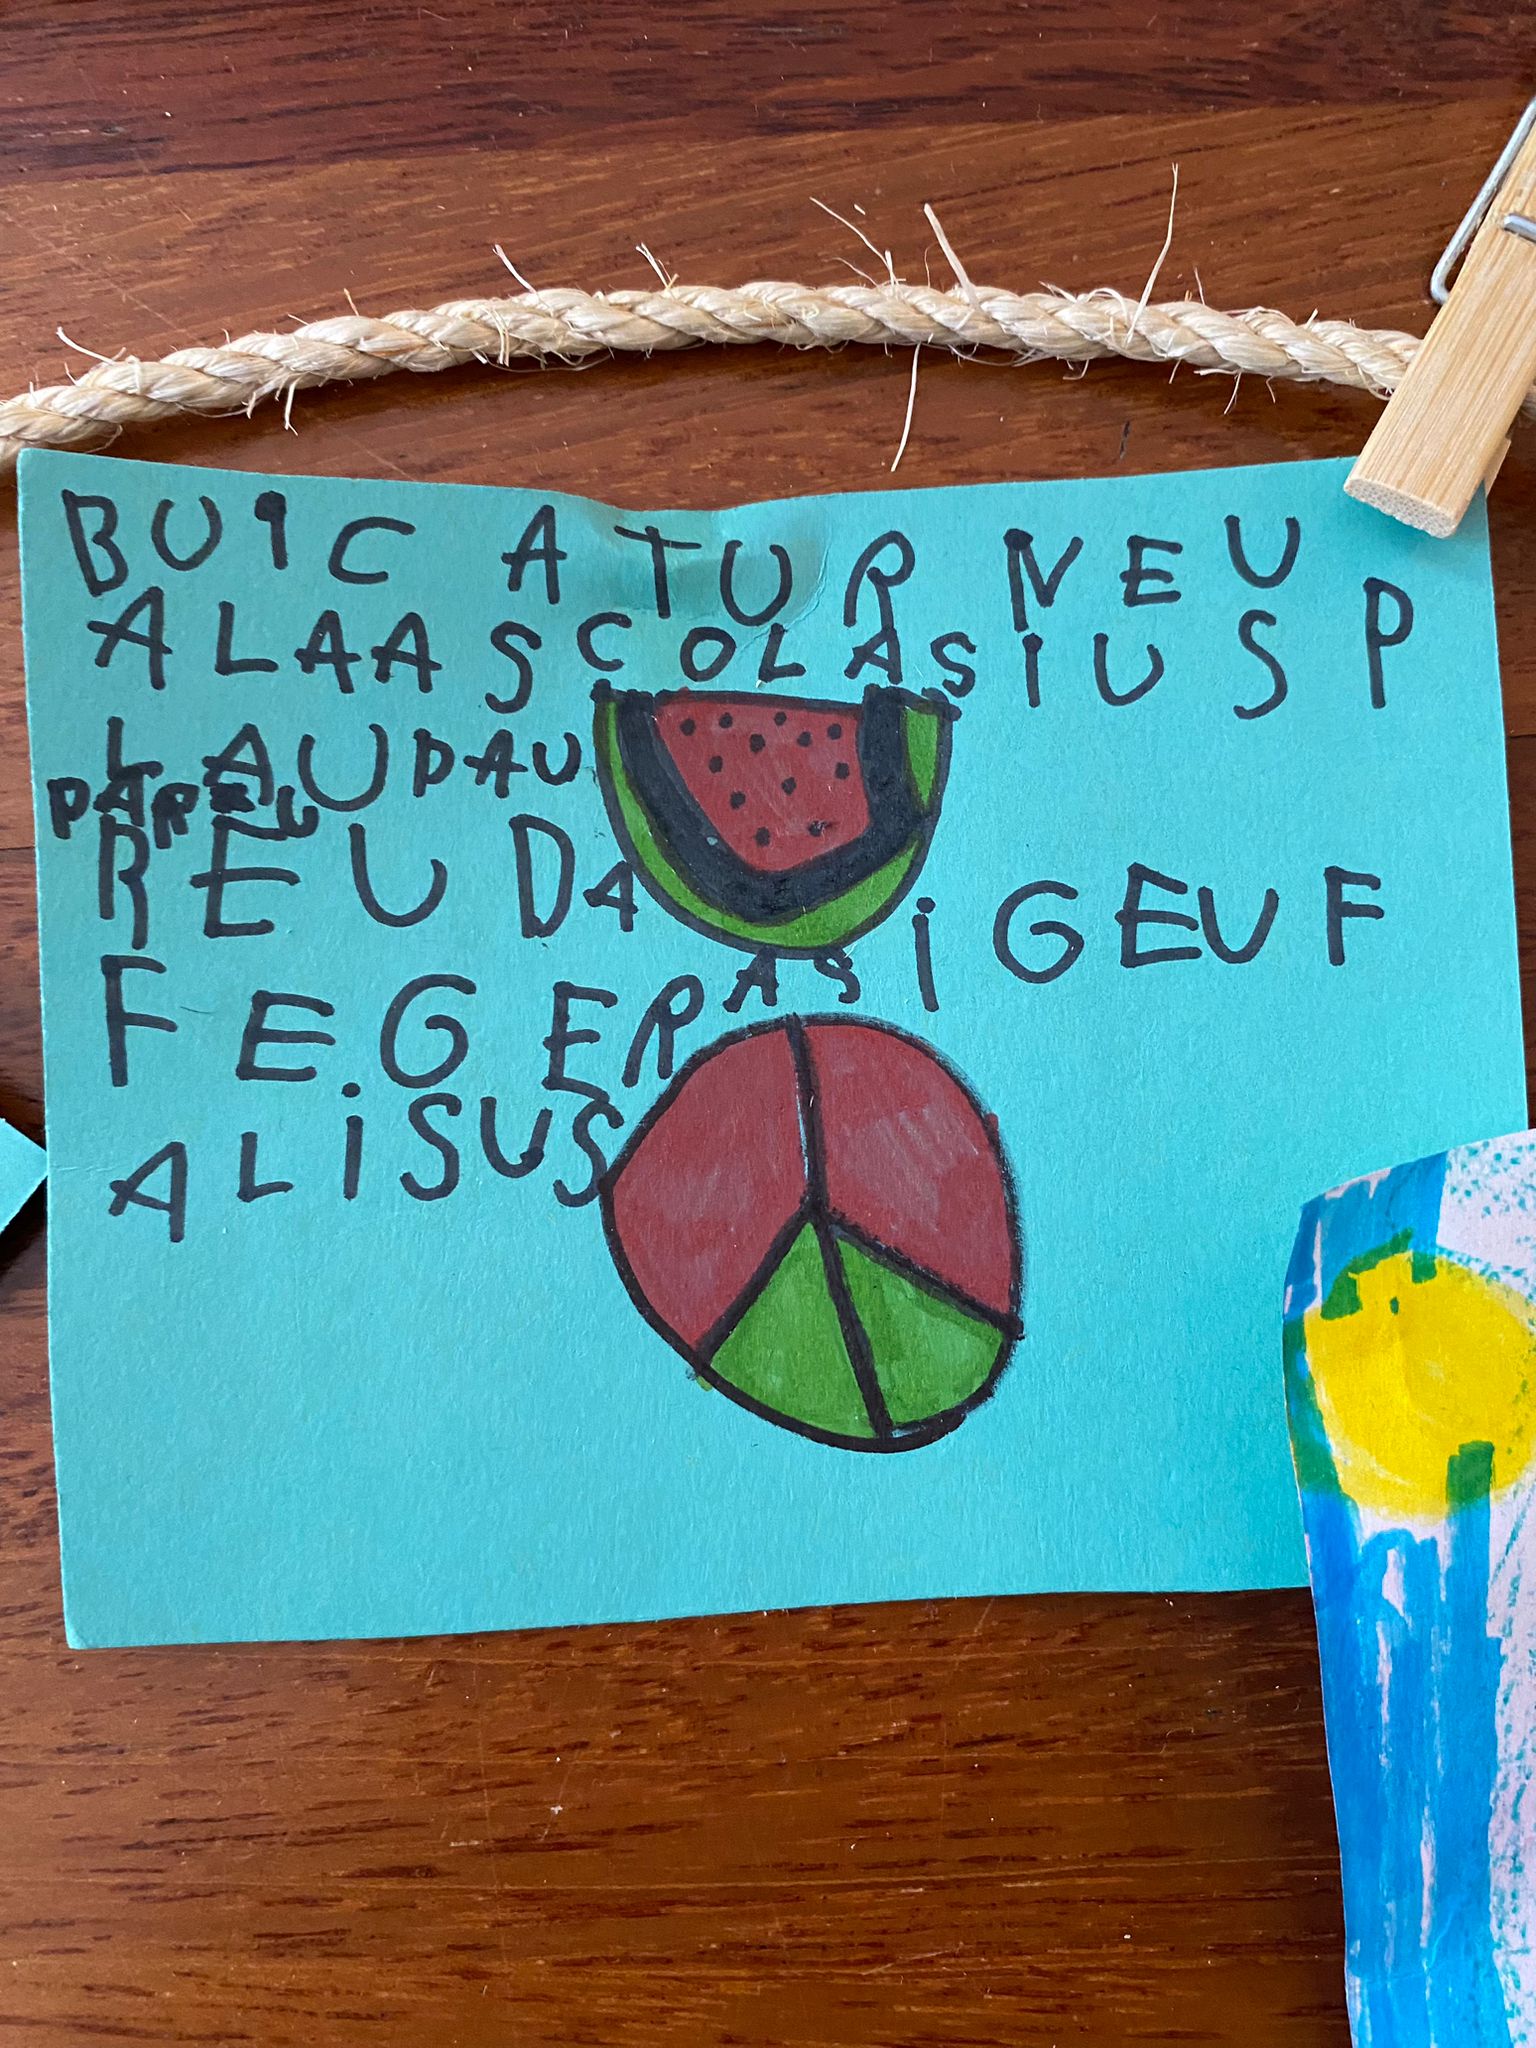 BUIC A TUR NEU
ALAA SCOLASIUSP
LAUDAU
PAREU
REUDA
ASIGEUF
FEGER
ALISUS